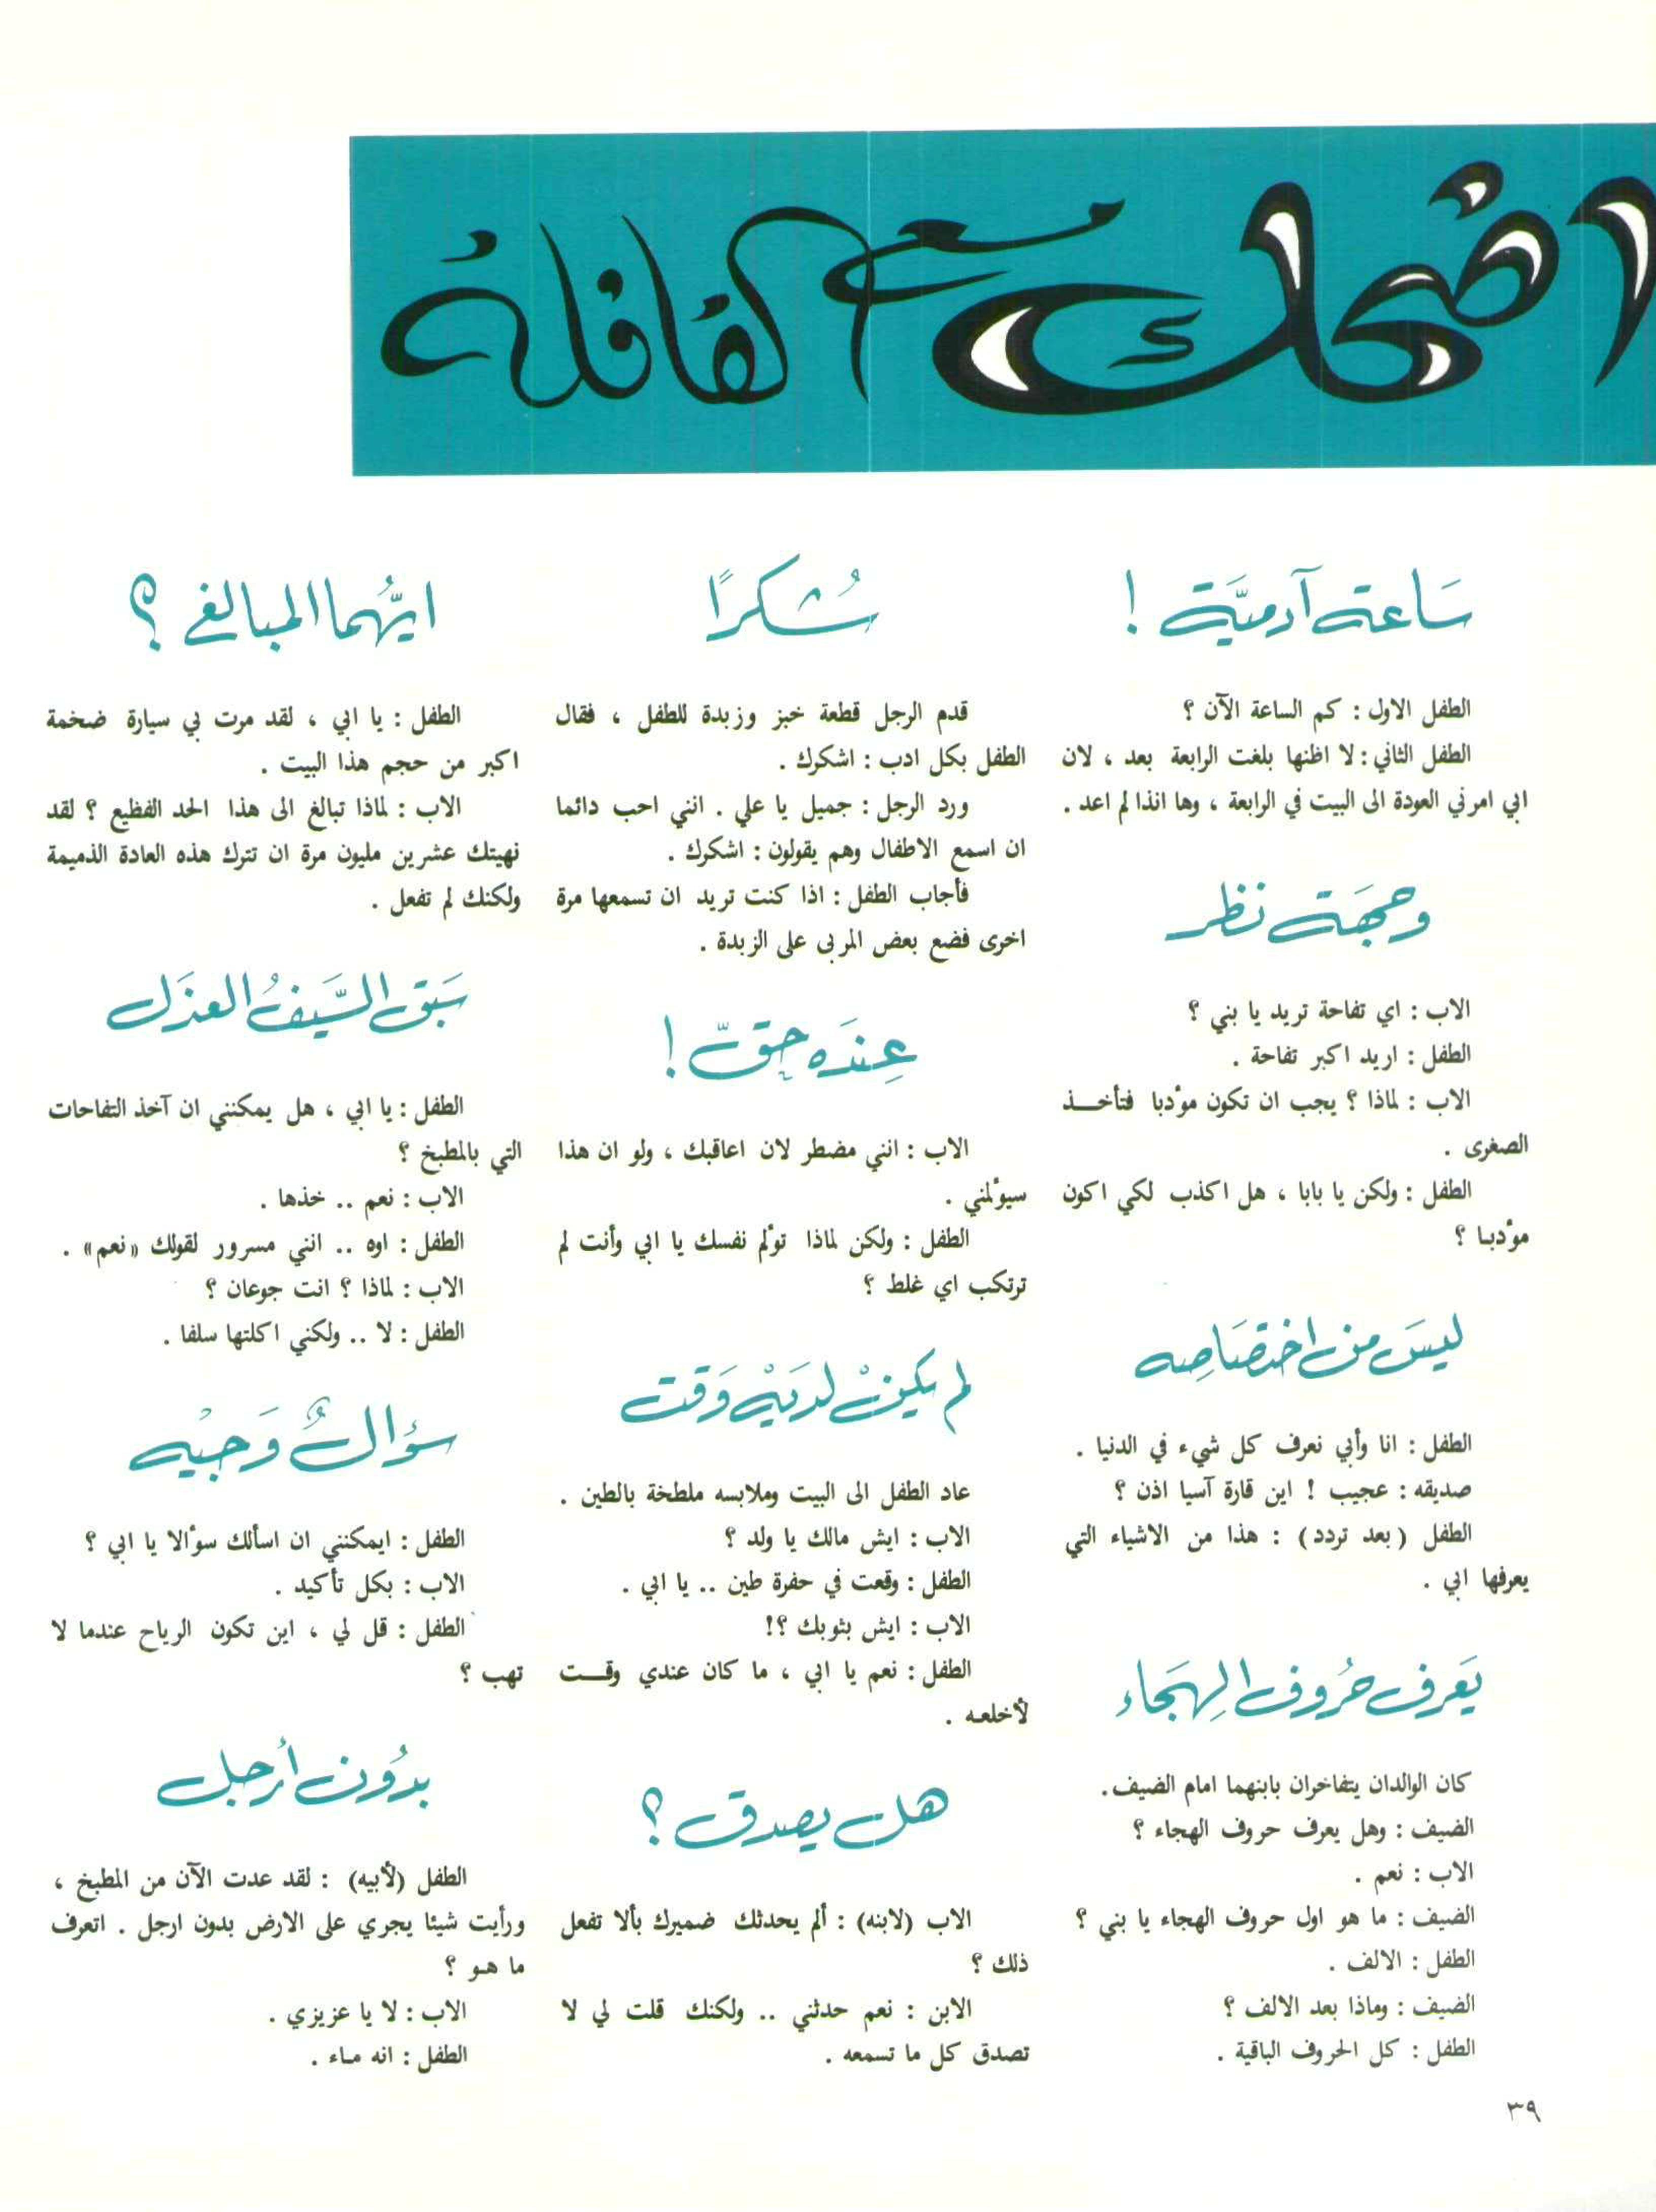 اضحك مع القافلة
ساعة آدميّة !
الطفل الاول : كم الساعة الآن ؟
الطفل الثاني : لا اظنها بلغت الرابعة بعد ، لان
ابي امرني العودة الى البيت في الرابعة ، وها انذا لم اعد .
وجهة نظر
الاب : اي تفاحة تريد يا بني ؟
الطفل : اريد اكبر تفاحة .
الاب : لماذا ؟ يجب ان تكون مؤدبا فتأخــذ
الصغرى .
الطفل : ولكن يا بابا ، هل اكذب لكي اكون
مؤدبـا ؟
ليسَ من اختصَاصِه
الطفل : انا وأبي نعرف كل شيء في الدنيا .
صديقه : عجيب ! اين قارة آسيا اذن ؟
الطفل ( بعد تردد ) : هذا من الاشياء التي
يعرفها ابي .
يَعرف حُروف الهِجَاء
كان الوالدان يتفاخران بابنهما امام الضيف .
الضيف : وهل يعرف حروف الهجاء ؟
الاب : نعم .
الضيف : ما هو اول حروف الهجاء يا بني ؟
الطفل : الالف .
الضيف : وماذا بعد الالف ؟
الطفل : كل الحروف الباقية .
شُكرًا
قدم الرجل قطعة خبز وزبدة للطفل ، فقال
الطفل بكل ادب : اشكرك .
ورد الرجل : جميل يا علي . انني احب دائما
ان اسمع الاطفال وهم يقولون : اشكرك .
فأجاب الطفل : اذا كنت تريد ان تسمعها مرة
اخرى فضع بعض المربى على الزبدة .
عِندَه حِقّ !
الاب : انني مضطر لان اعاقبك ، ولو ان هذا
سيؤلمني .
الطفل : ولكن لماذا تؤلم نفسك يا ابي وأنت لم
ترتكب اي غلط ؟
لم يكنْ لدَيْه وَقت
عاد الطفل الى البيت وملابسه ملطخة بالطين .
الاب : ايش مالك يا ولد ؟
الطفل : وقعت في حفرة طين .. يا ابي .
الاب : ايش بثوبك ؟!
الطفل : نعم يا ابي ، ما كان عندي وقــت
لأخلعـه .
هل يصدق ؟
الاب (لابنه) : ألم يحدثك ضميرك بألا تفعل
ذلك ؟
الابن : نعم حدثني .. ولكنك قلت لي لا
تصدق كل ما تسمعه .
ايّهُما المبالغ ؟
الطفل : يا ابي ، لقد مرت بي سيارة ضخمة
اكبر من حجم هذا البيت .
الاب : لماذا تبالغ الى هذا الحد الفظيع ؟ لقد
نهيتك عشرين مليون مرة ان تترك هذه العادة الذميمة
ولكنك لم تفعل .
سَبق السَّيفُ العذَل
الطفل : يا ابي ، هل يمكنني ان آخذ التفاحات
التي بالمطبخ ؟
الاب : نعم .. خذها .
الطفل : اوه .. انني مسرور لقولك «نعم» .
الاب : لماذا ؟ انت جوعان ؟
الطفل : لا .. ولكني اكلتها سلفا .
سؤالٌ وَجيْه
الطفل : ايمكنني ان اسألك سؤالا يا ابي ؟
الاب : بكل تأكيد .
الطفل : قل لي ، اين تكون الرياح عندما لا
تهب ؟
بدُون أرجُل
الطفل (لأبيه) : لقد عدت الآن من المطبخ ،
ورأيت شيئا يجري على الارض بدون ارجل . اتعرف
ما هـو ؟
الاب : لا يا عزيزي .
الطفل : انه مـاء .
٣٩